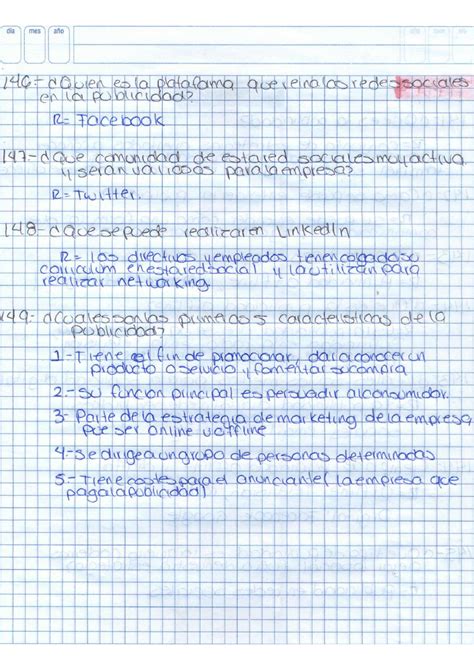 dia mes año
146- ¿Quien es la plataforma que reina las redes sociales
en la publicidad?
R= Facebook
147- ¿Que comunidad de esta red social es muy activa
y seran valiosos para la empresa?
R= Twitter.
148- ¿Que se puede realizar en LinkedIn
R= Los directivos y empleados tienen colgado su
curriculum en esta red social y la utilizan para
realizar networking.
149- ¿Cuales son las primeras 5 caracteristicas de la
publicidad?
1- Tiene el fin de promocionar, dar a conocer un
producto o servicio y fomentar su compra
2.- Su funcion principal es persuadir al consumidor.
3- Parte de la estrategia de marketing de la empresa,
pue ser online u offline
4- Se dirige a un grupo de personas determinadas
5- Tiene costes para el anunciante (la empresa que
paga la publicidad)